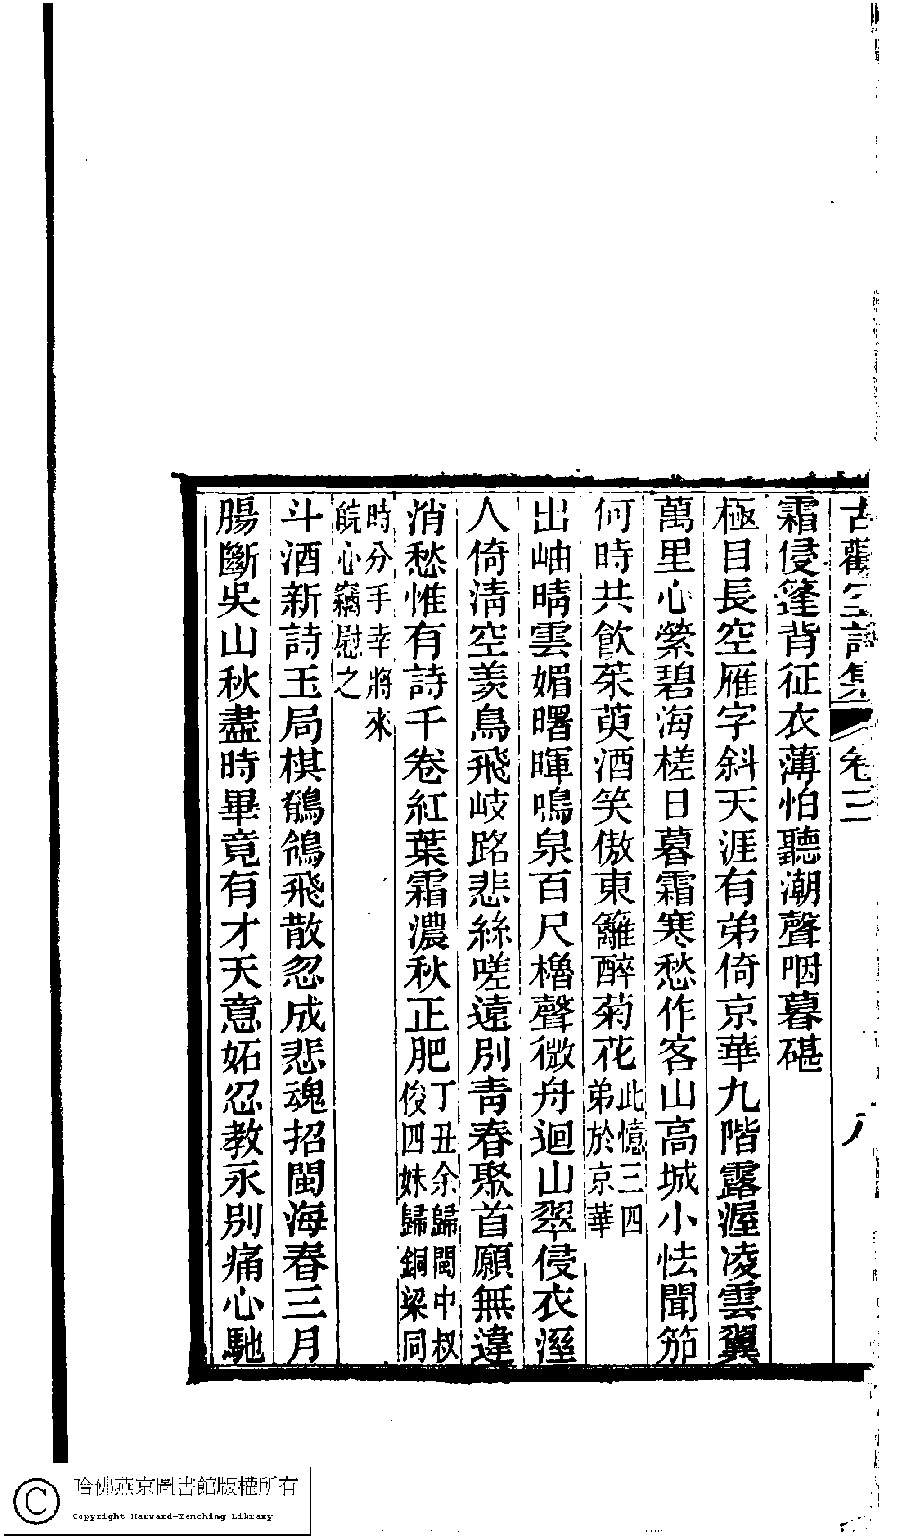 古歡室詩集 卷三 八
霜侵篷背征衣薄怕聽潮聲咽暮碪
極目長空雁字斜天涯有弟倚京華九階露渥凌雲翼
萬里心縈碧海槎日暮霜寒愁作客山高城小怯聞笳
何時共飲茱萸酒笑傲東籬醉菊花此憶三四弟於京華
出岫晴雲媚曙暉鳴泉百尺櫓聲微舟迴山翠侵衣溼
人倚淸空羨鳥飛岐路悲絲嗟遠別靑春聚首願無違
消愁惟有詩千卷紅葉霜濃秋正肥丁丑余歸閩中叔俊四妹歸銅梁同
時分手幸將來皖心竊慰之
斗酒新詩玉局棋鶺鴒飛散忽成悲魂招閩海春三月
腸斷吳山秋盡時畢竟有才天意妬忍教永別痛心馳
哈佛燕京圖書館版權所有
Copyright Harvard-Yenching Library